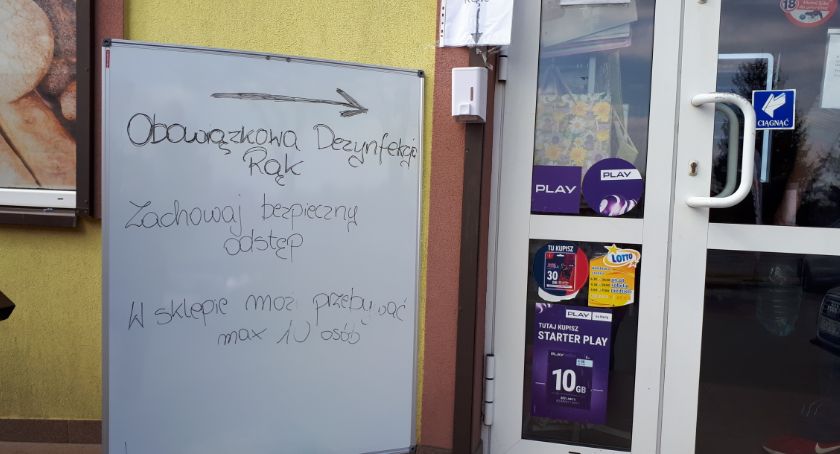 Obowiązkowa Dezynfekcja
Rąk
Zachowaj bezpieczny
odstęp
W sklepie mozi przebywać
max 10 osób
18
CIĄGNĄĆ
PLAY
PLAY
TU KUPISZ
30
LOTTO
PLAY
TUTAJ KUPISZ
STARTER PLAY
PLAY
10 GB